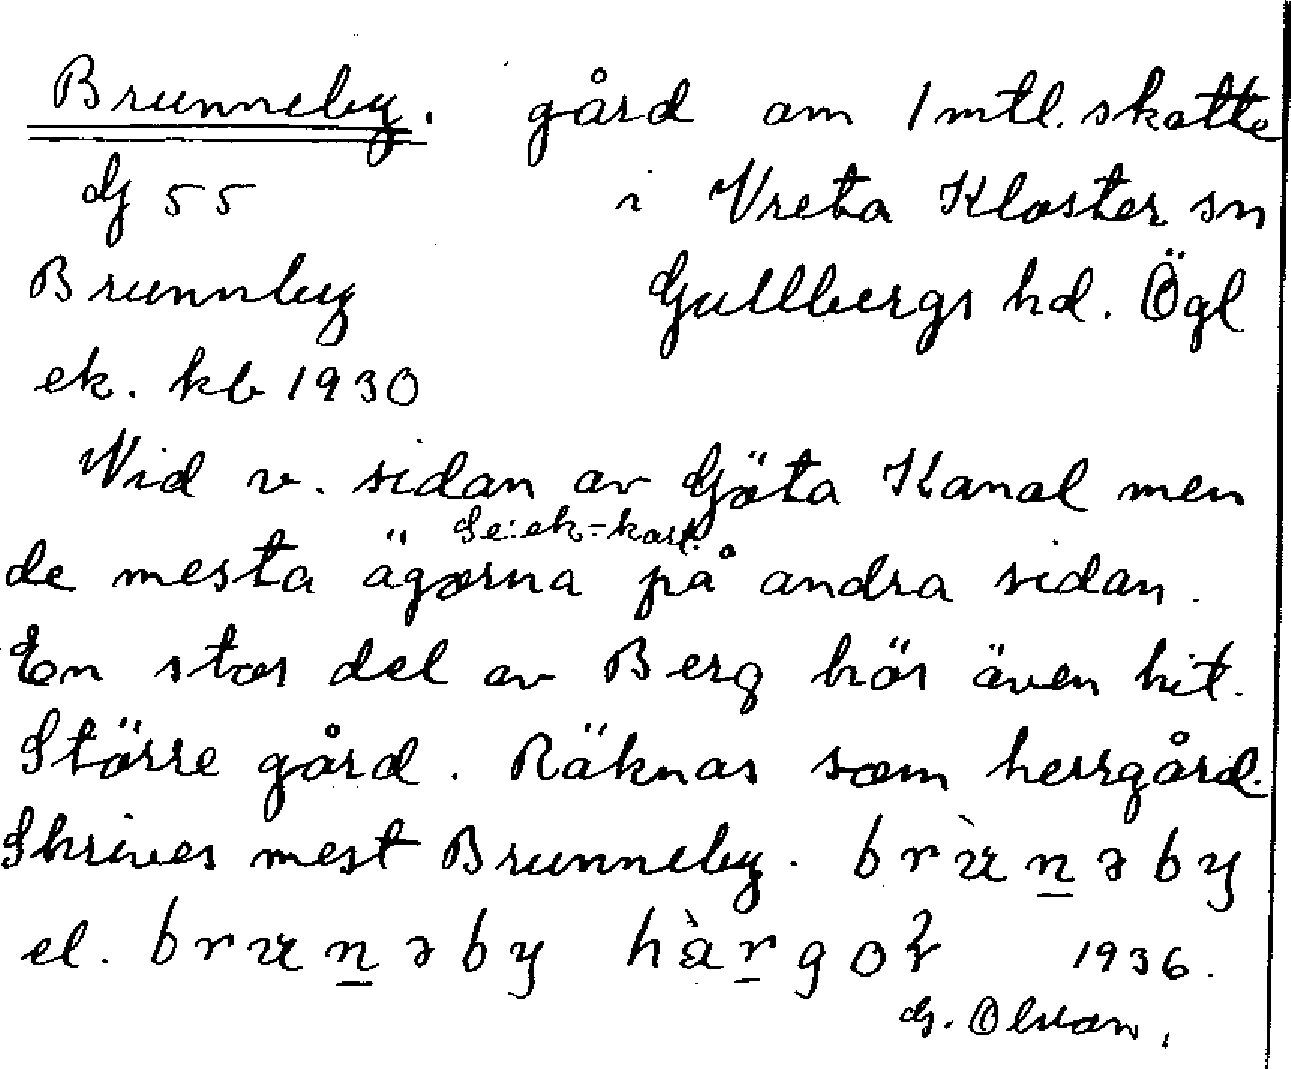 Brunneby. gård om 1 mtl. skatte
dJ 55 i Vreta Kloster sn
Brunnby Gullbergs hd. Ögl
ek. kb 1930
Vid v. sidan av Göta Kanal men
Se: ek-kart.
de mesta ägorna på andra sidan.
En stor del av Berg hör även hit.
Större gård. Räknas som herrgård.
Skrives mest Brunneby.
el. 1936.
G. Olson.